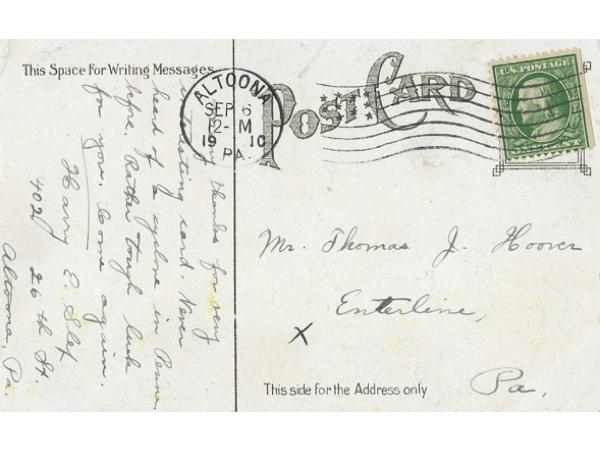 This Space For Writing Messages
POST CARD
ALTOONA
SEP 6
12-M
1910
PA.
U.S. POSTAGE
Many thanks for very
interesting card. Never
head of a cyclone in Penna
before. Rather tough luck
for you. Come again.
Harry E. Slep
402 26th St.
Altoona, Pa.
Mr. Thomas J. Hoover
Enterline,
Pa,
X
This side for the Address only